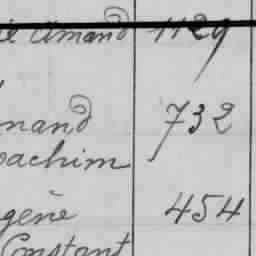 Amand 1129
mand 732
oachim
gène 454
Constant